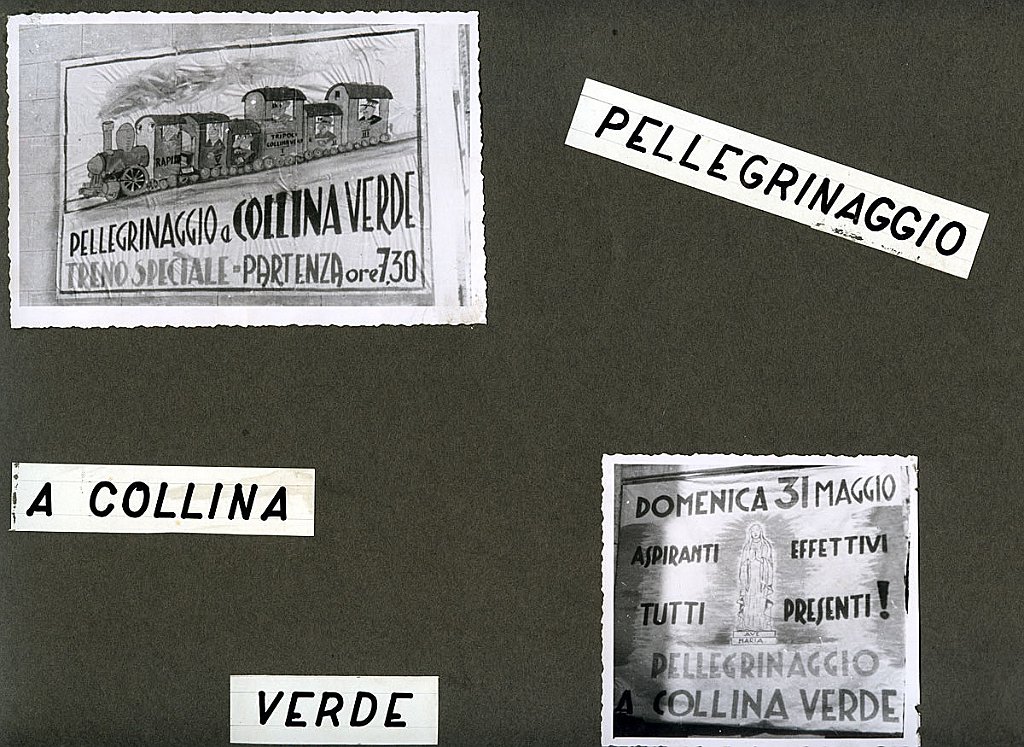 RAPIDO
TRIPOLI
COLLINA VERDE
III
PELLEGRINAGGIO a COLLINA VERDE
TRENO SPECIALE = PARTENZA ore 7,30
PELLEGRINAGGIO
A COLLINA
VERDE
DOMENICA 31 MAGGIO
ASPIRANTI EFFETTIVI
TUTTI PRESENTI!
AVE
MARIA
PELLEGRINAGGIO
A COLLINA VERDE